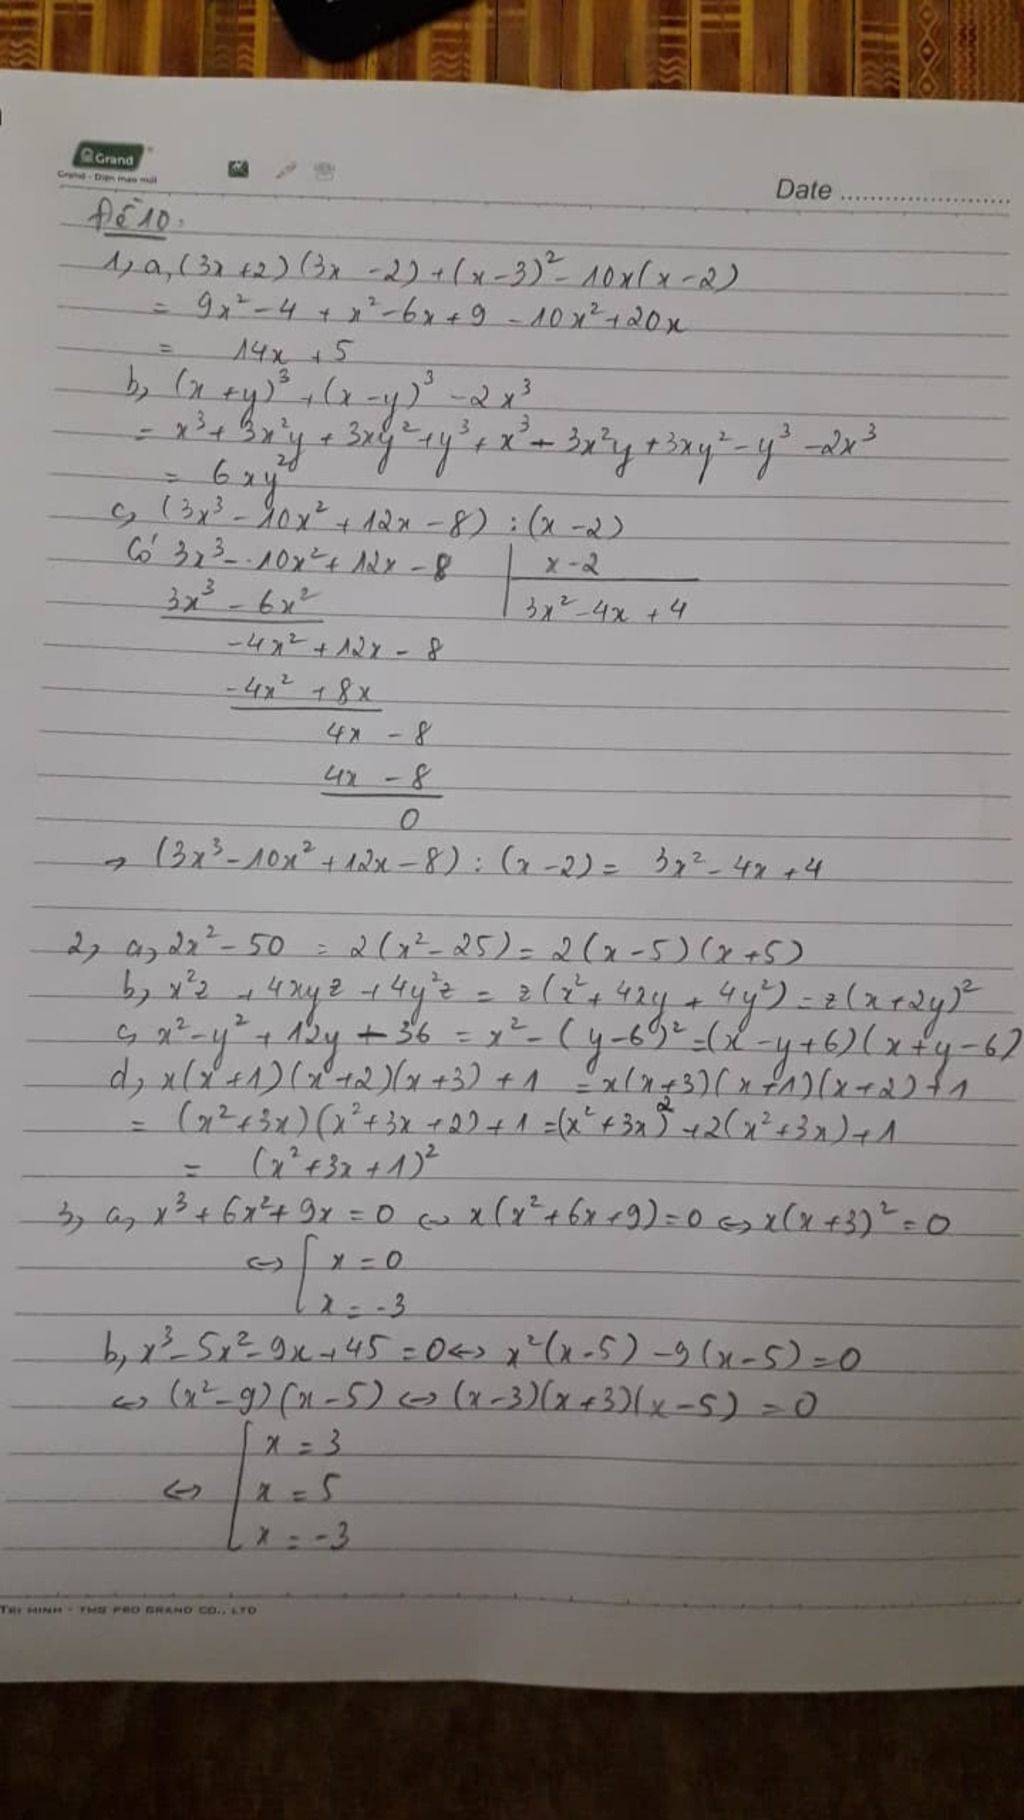 Grand
Grand - Diện mạo mới
Date
Đề 10:
1, a, (3x+2)(3x-2)+(x-3)² - 10x(x-2)
= 9x² - 4 + x² - 6x + 9 - 10x² + 20x
= 14x + 5
b, (x+y)³ + (x-y)³ - 2x³
= x³ + 3x²y + 3xy² + y³ + x³ - 3x²y + 3xy² - y³ - 2x³
= 6xy²
c, (3x³ - 10x² + 12x - 8) : (x-2)
Có 3x³ - 10x² + 12x - 8 | x-2
3x³ - 6x² | 3x² - 4x + 4
-4x² + 12x - 8
-4x² + 8x
4x - 8
4x - 8
0
→ (3x³ - 10x² + 12x - 8) : (x-2) = 3x² - 4x + 4
2, a, 2x² - 50 = 2(x² - 25) = 2(x-5)(x+5)
b, x²z + 4xyz + 4y²z = z(x² + 4xy + 4y²) = z(x+2y)²
c, x² - y² + 12y - 36 = x² - (y-6)² = (x-y+6)(x+y-6)
d, x(x+1)(x+2)(x+3) + 1 = x(x+3)(x+1)(x+2) + 1
= (x²+3x)(x²+3x+2) + 1 = (x²+3x)² + 2(x²+3x) + 1
= (x²+3x+1)²
3, a, x³ + 6x² + 9x = 0 ⇔ x(x²+6x+9) = 0 ⇔ x(x+3)² = 0
⇔ [ x = 0
x = -3
b, x³ - 5x² - 9x + 45 = 0 ⇔ x²(x-5) - 9(x-5) = 0
⇔ (x²-9)(x-5) ⇔ (x-3)(x+3)(x-5) = 0
[ x = 3
⇔ x = 5
x = -3
TRI MINH - TMG PRO GRAND CO., LTD